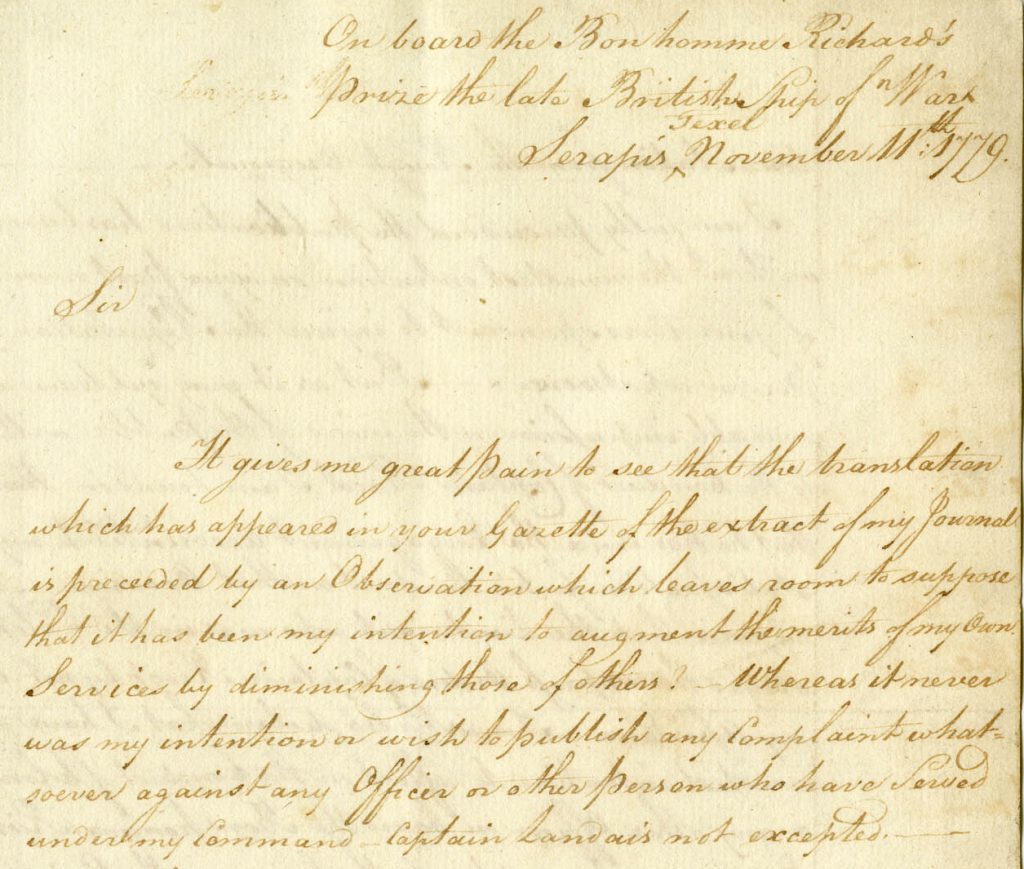 On board the Bon homme Richard's
Prize the late British Ship of War
Texel
Serapis, November 11th: 1779.
Sir
It gives me great pain to see that the translation
which has appeared in your Gazette of the extract of my Journal
is preceeded by an Observation which leaves room to suppose
that it has been my intention to augment the merits of my Own
Services by diminishing those of others? — Whereas it never
was my intention or wish to publish any Complaint what=
soever against any Officer or other person who have Served
under my Command — Captain Landais not excepted. —